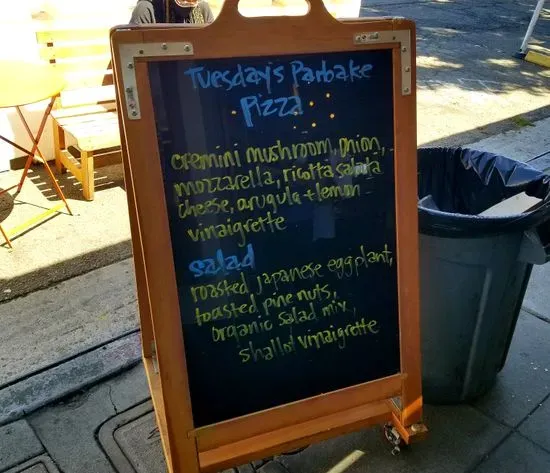 Tuesday's Parbake
Pizza
cremini mushroom, onion,
mozzarella, ricotta salata
cheese, arugula + lemon
vinaigrette
salad
roasted japanese eggplant,
toasted pine nuts,
organic salad mix,
shallot vinaigrette